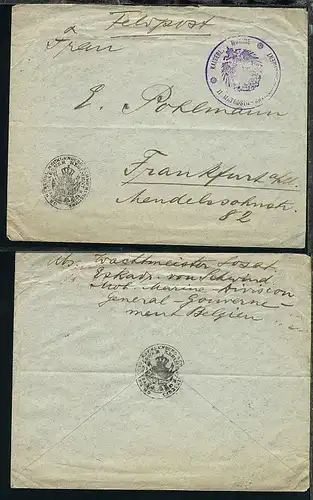 Feldpost
Frau
E. Pohlmann
Frankfurt a/M.
Mendelssohnstr.
82
KAISERL. MARINE
Abs. Wachtmeister
Eskadr. von Schwind
Mob. Marine-Division
General-Gouverne-
ment Belgien